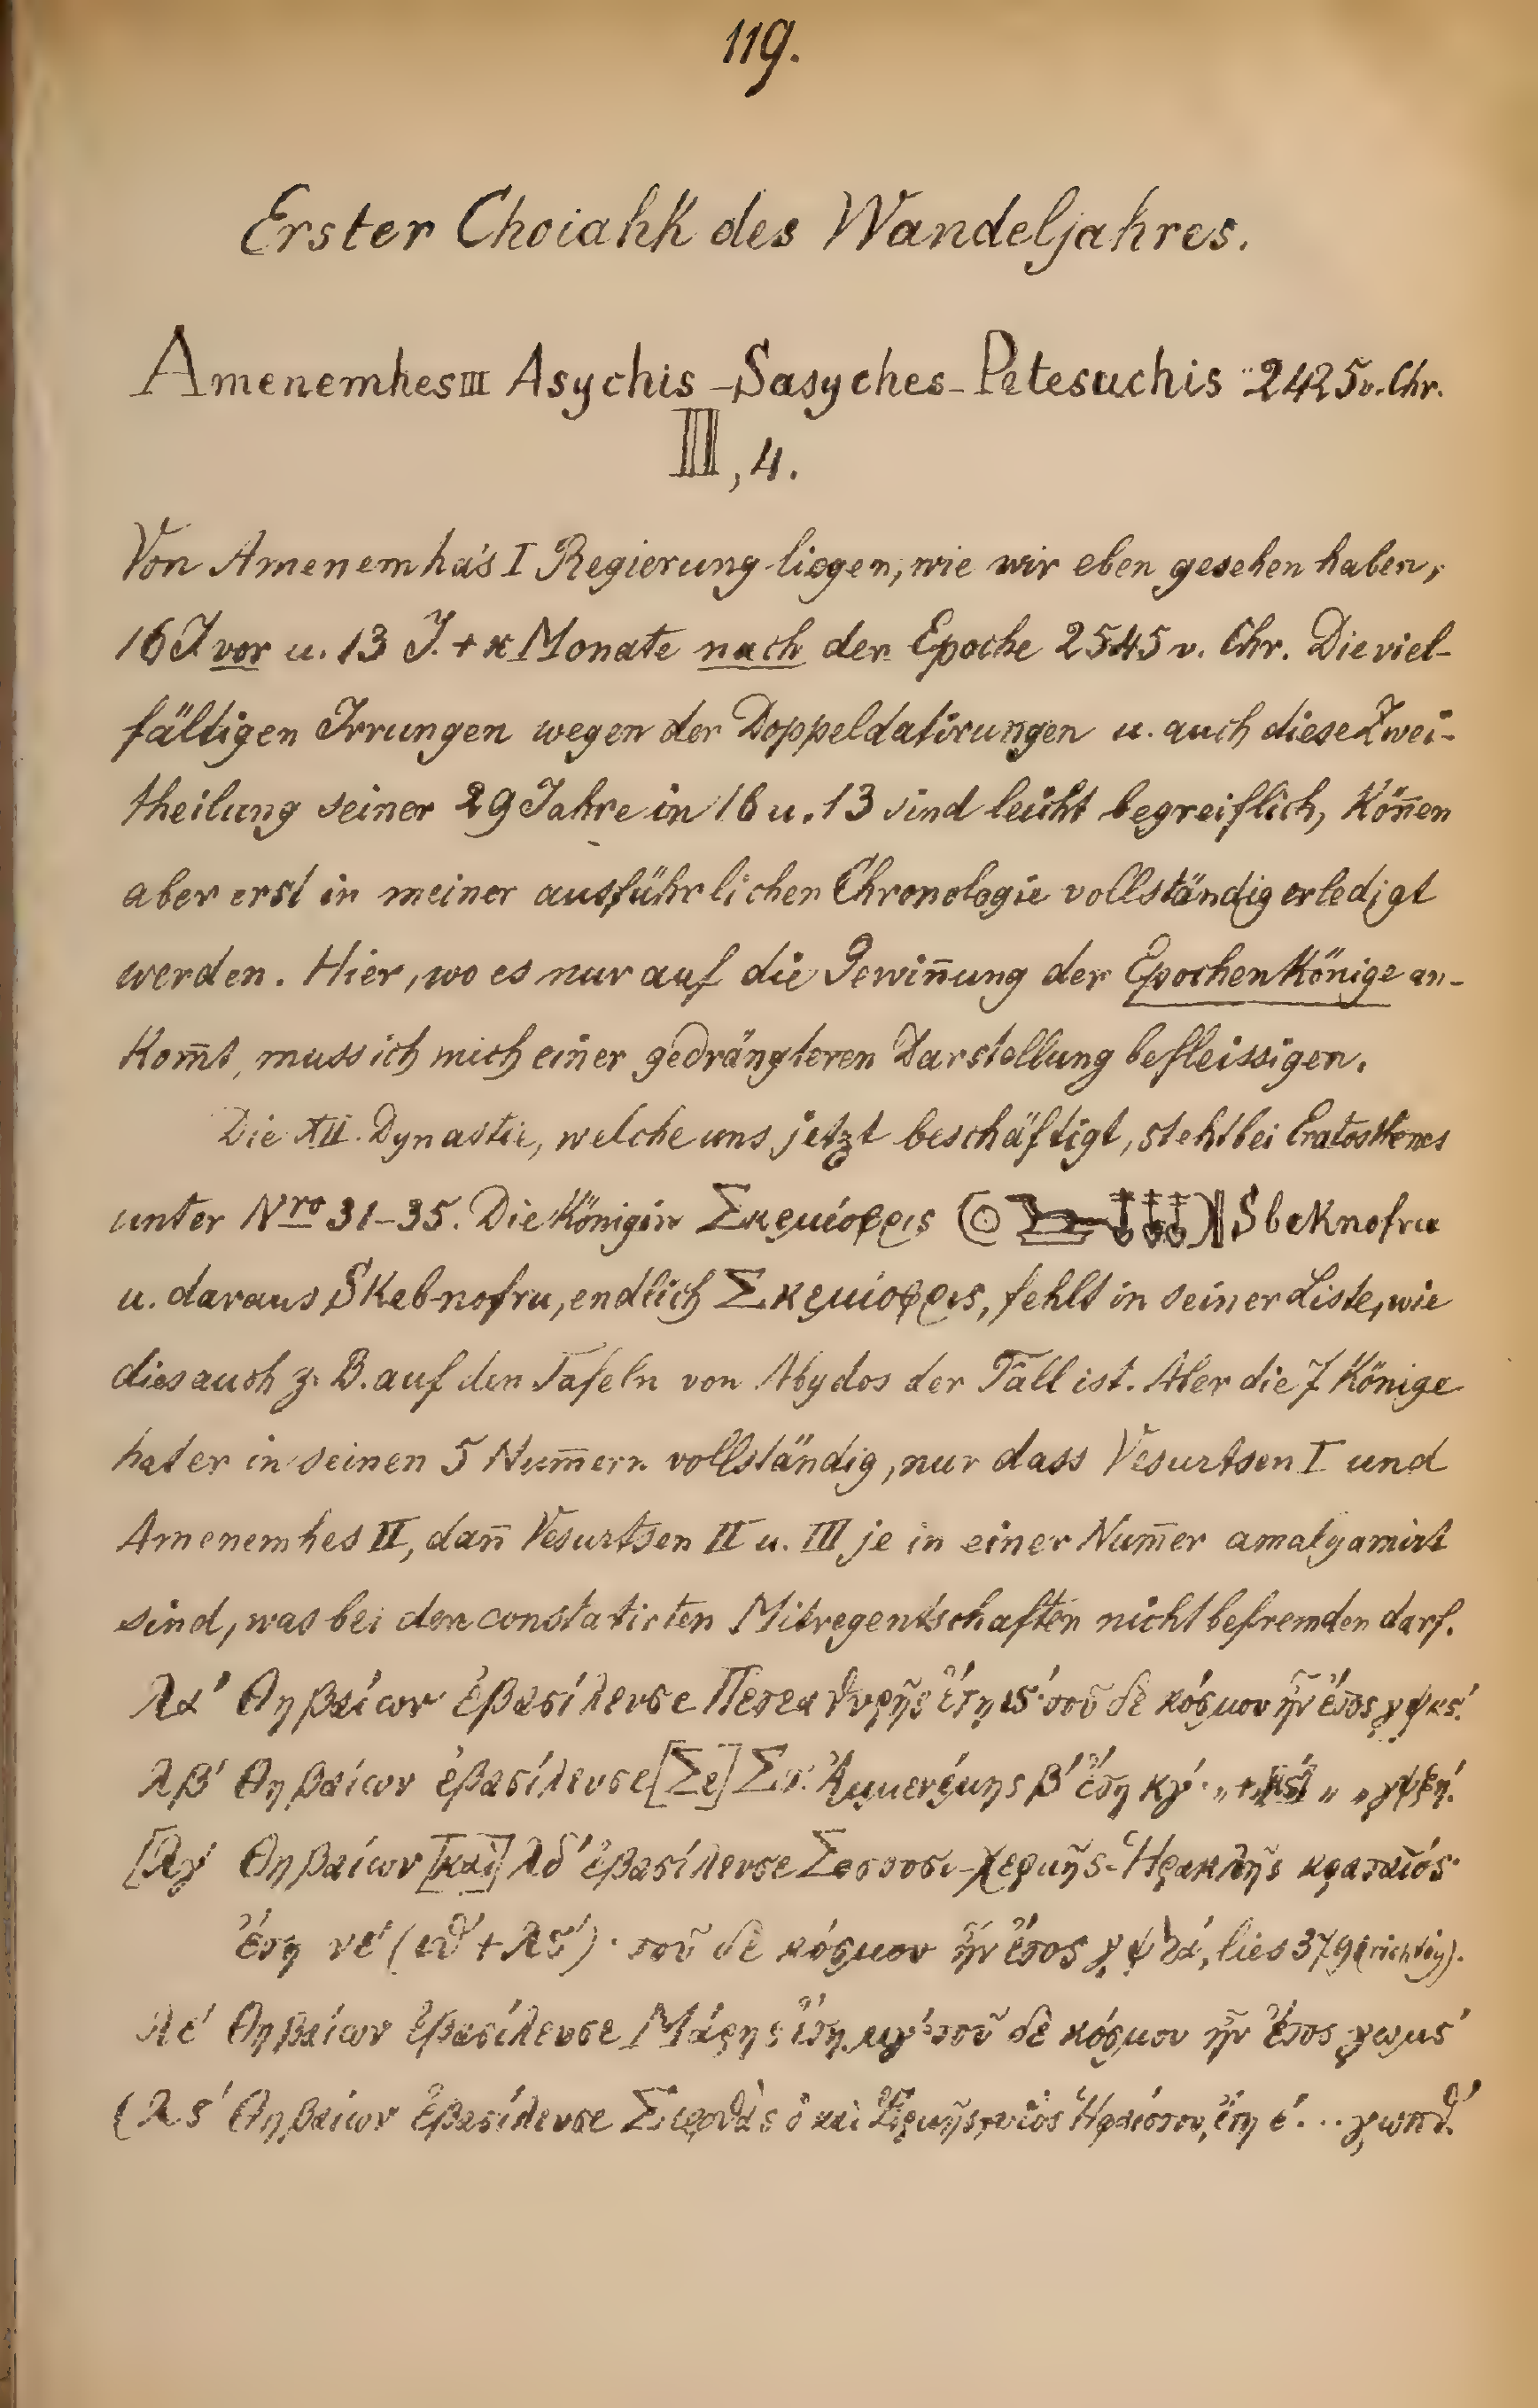 119.
Erster Choiahk des Wandeljahres.
Amenemhes III Asychis-Sasyches-Petesuchis 2425 v. Chr.
III, 4.
Von Amenemha's I Regierung liegen, wie wir eben gesehen haben,
16 J vor u. 13 J. + x Monate nach der Epoche 2545 v. Chr. Die viel-
fältigen Irrungen wegen der Doppeldatirungen u. auch diese Zwei-
theilung seiner 29 Jahre in 16 u. 13 sind leicht begreiflich, Könn̄en
aber erst in meiner ausführlichen Chronologie vollständig erledigt
werden. Hier, wo es nur auf die Gewin̄ung der EpochenKönige an-
Kom̄t, muss ich mich einer gedrängteren Darstellung befleissigen.
Die XII. Dynastie, welche uns jetzt beschäftigt, steht bei Eratosthenes
unter Nro 31–35. Die Königin Σκεμίοφρις Sbeknofru
u. daraus Skebnofru, endlich Σκεμίοφρις, fehlt in seiner Liste, wie
dies auch z. B. auf den Tafeln von Abydos der Fall ist. Aber die 7 Könige
hat er in seinen 5 Num̄ern vollständig, nur dass Vesurtsen I und
Amenemhes II, dan̄ Vesurtsen II u. III je in einer Num̄er amalgamirt
sind, was bei den constatirten Mitregentschaften nicht befremden darf.
λα' Θηβαίων ἐβασίλευσε Πετεαθυρῆς ἔτη ις· τοῦ δὲ κόσμου ἦν ἔτος γψκς'.
λβ' Θηβαίων ἐβασίλευσε [Σε] Στ. Ἀμμενέμης β' ἔτη κγ'· „ „ „ γψξη'.
[λγ' Θηβαίων [καὶ] λδ' ἐβασίλευσε Σιστοσι-χερμῆς-Ἡρακλῆς κραταιός·
ἔτη νε' (ιθ' + λς')· τοῦ δὲ κόσμου ἦν ἔτος γψϟά, lies 3791 (richtig).
λε' Θηβαίων ἐβασίλευσε Μάρης ἔτη μγ'· τοῦ δὲ κόσμου ἦν ἔτος γωμς'
(λς' Θηβαίων ἐβασίλευσε Σιφθὰς ὁ καὶ Ἑρμῆς, υἱὸς Ἡφαίστου, ἔτη ε'... γωπθ'.